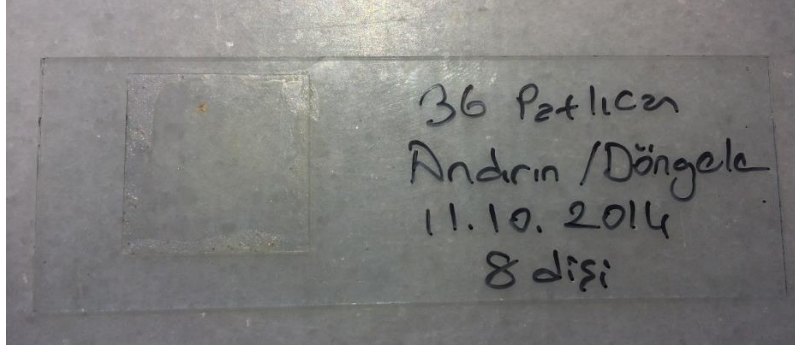 36 Patlıcan
Andırın /Döngele
11.10.2014
8 dişi